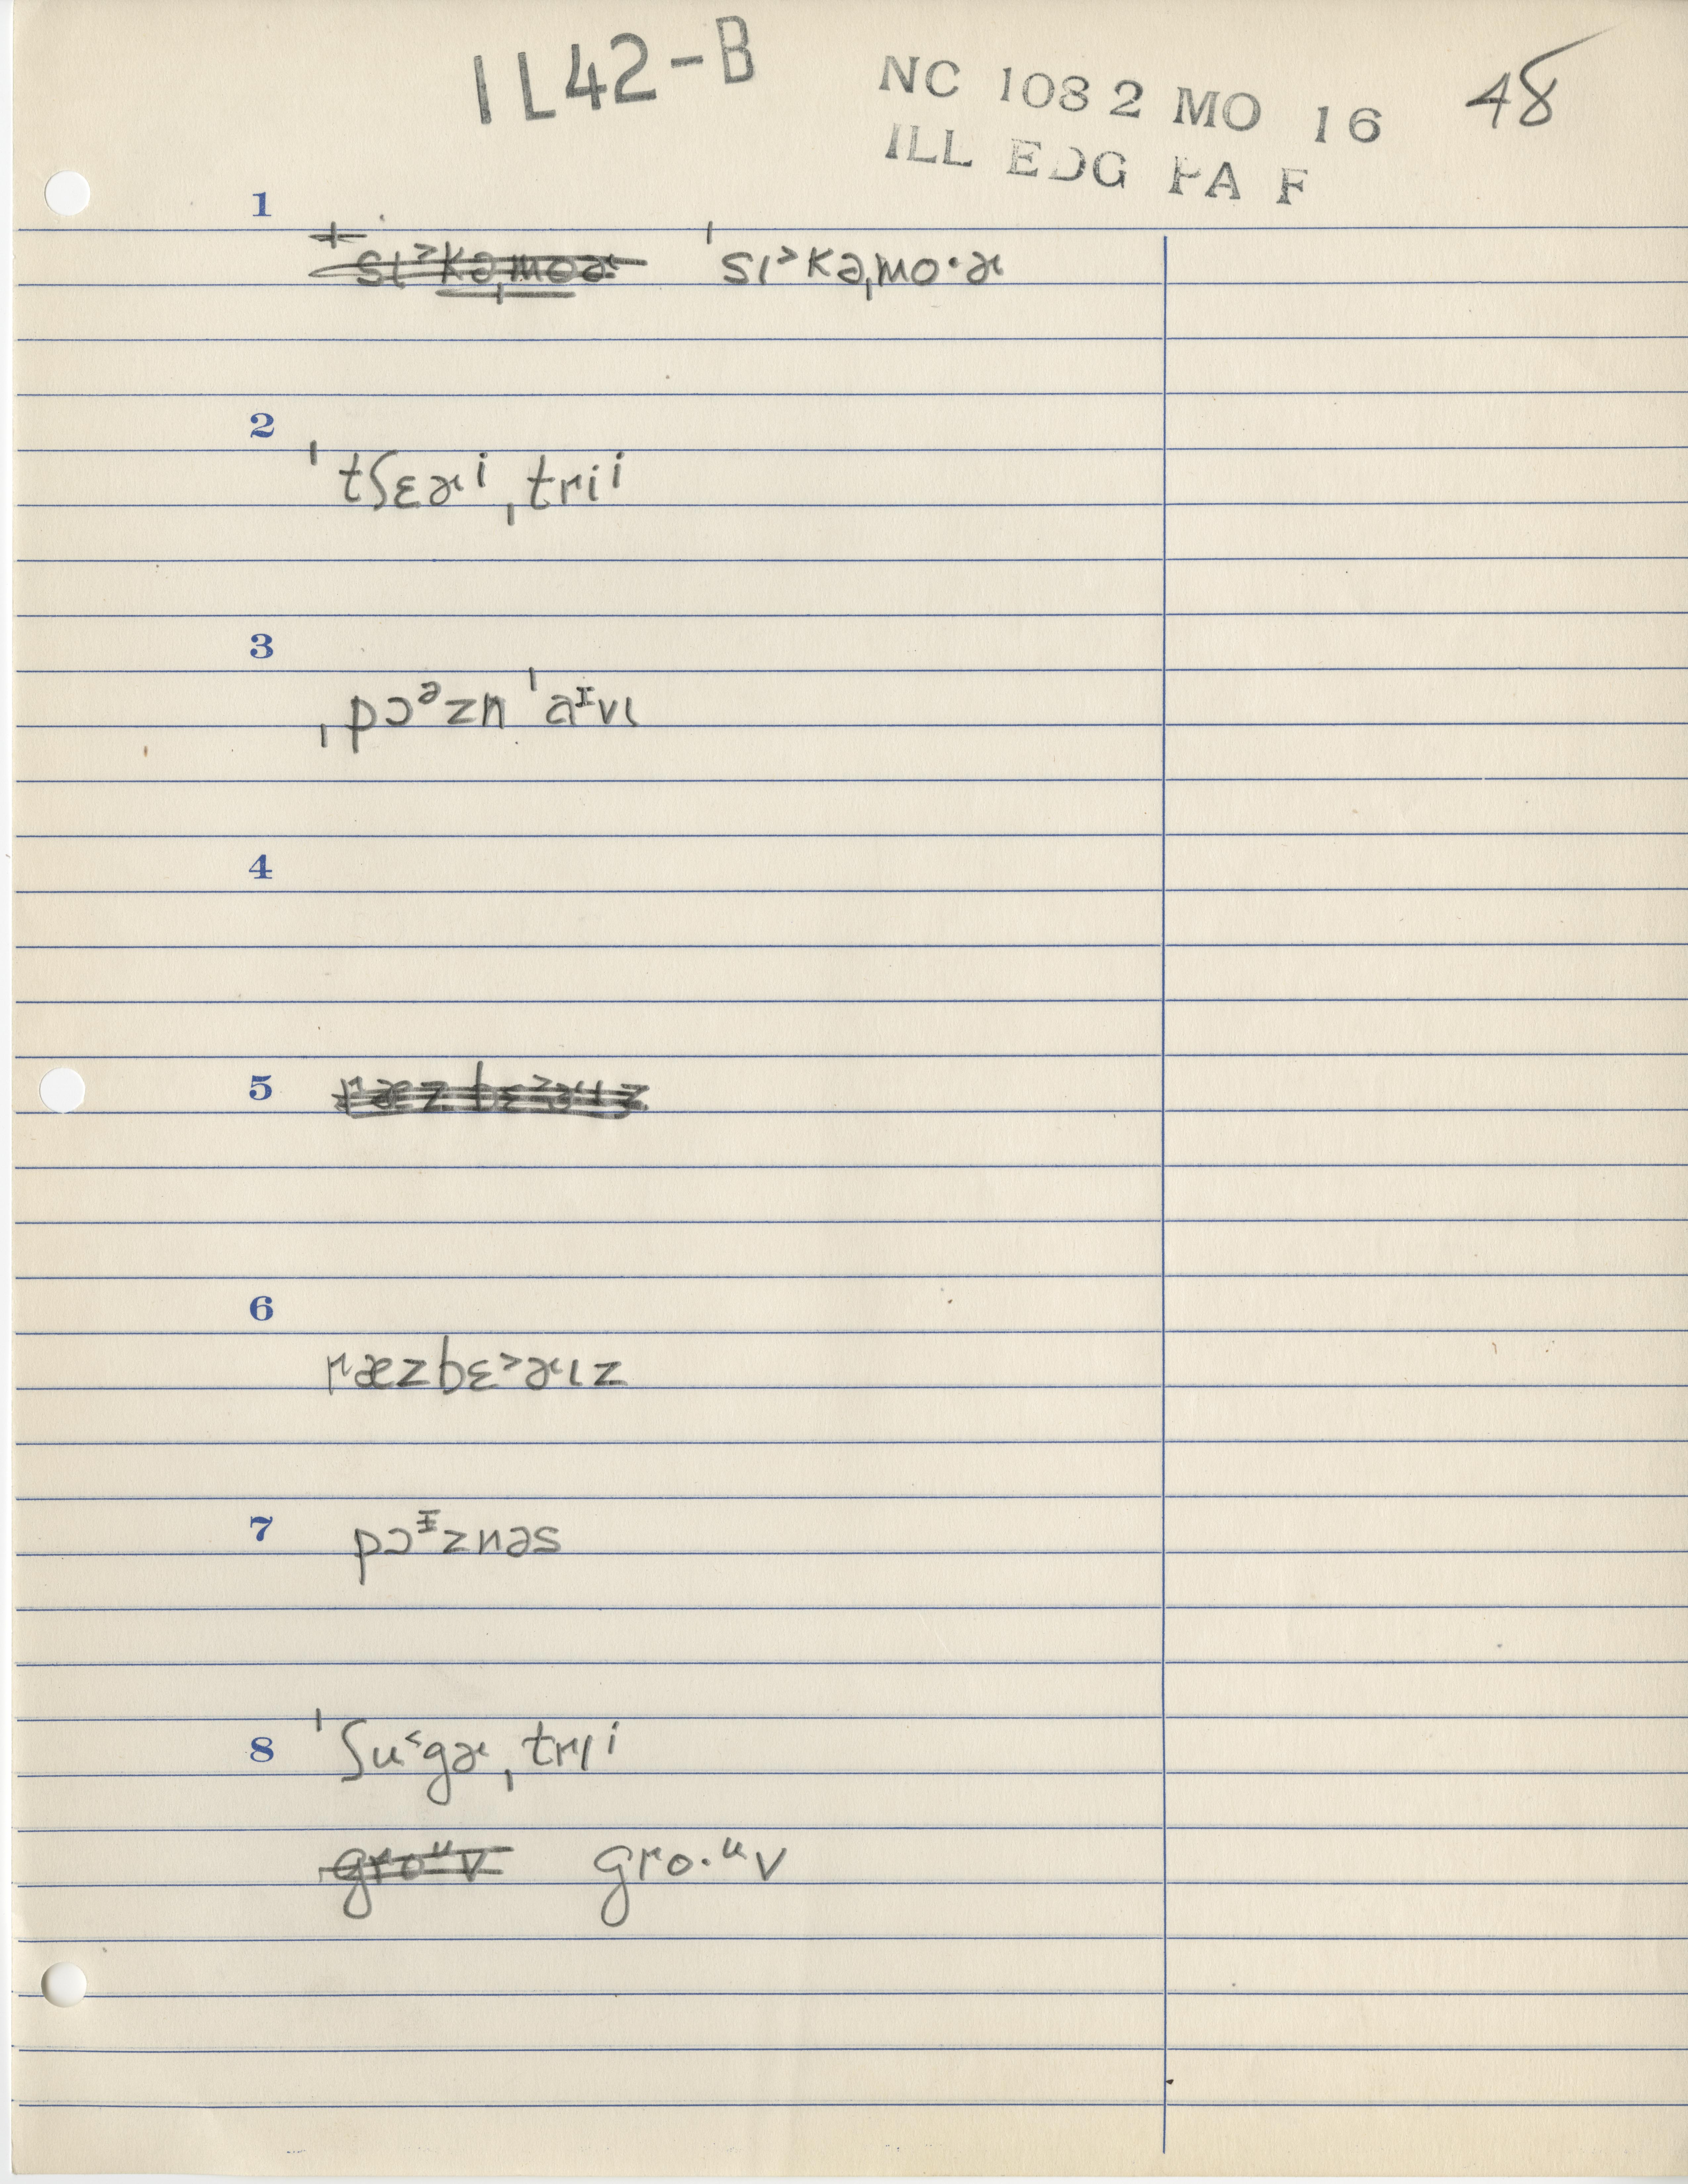 1L42-B NC 1082 MO 16 48
ILL EDG PA F
1
ˈsɩ˃kəˌmoɚ ˈsɩ˃kəˌmo·ɚ
2
ˈtʃɛɚⁱˌtriⁱ
3
ˌpɔᵊznˈaᶦvɩ
4
5
ræzbɛ˃ɚɩz
6
ræzbɛ˃ɚɩz
7
pɔᵻznəs
8
ˈʃu˂gɚˌtrɩⁱ
groᵘv gro·ᵘv